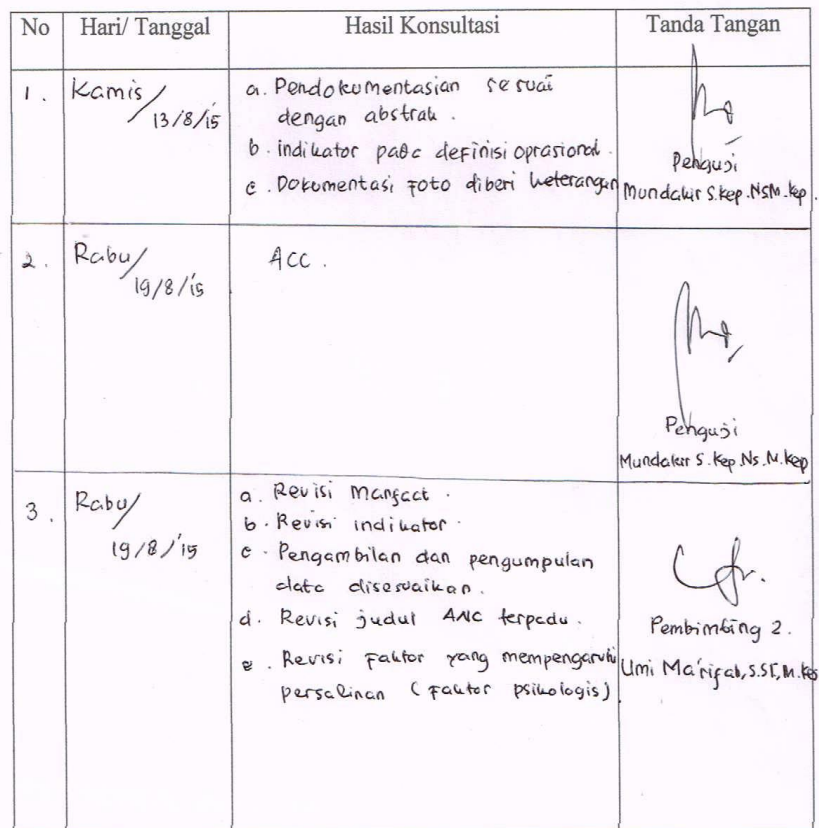 No Hari/ Tanggal Hasil Konsultasi Tanda Tangan
1. Kamis/ 13/8/'15
a. Pendokumentasian sesuai
dengan abstrak.
b. indikator pada definisi oprasional.
c. Dokumentasi Foto diberi keterangan
Penguji
Mundakir S.kep.NSM.kep.
2. Rabu/ 19/8/'15
ACC.
Penguji
Mundakir S.Kep.Ns.M.kep
3. Rabu/ 19/8/'15
a. Revisi Manfaat.
b. Revisi indikator.
c. Pengambilan dan pengumpulan
data disesuaikan.
d. Revisi judul ANC terpadu.
e. Revisi Faktor yang mempengaruhi
persalinan (Faktor psikologis)
Pembimbing 2.
Umi Ma'rifah, S.ST, M.Kes